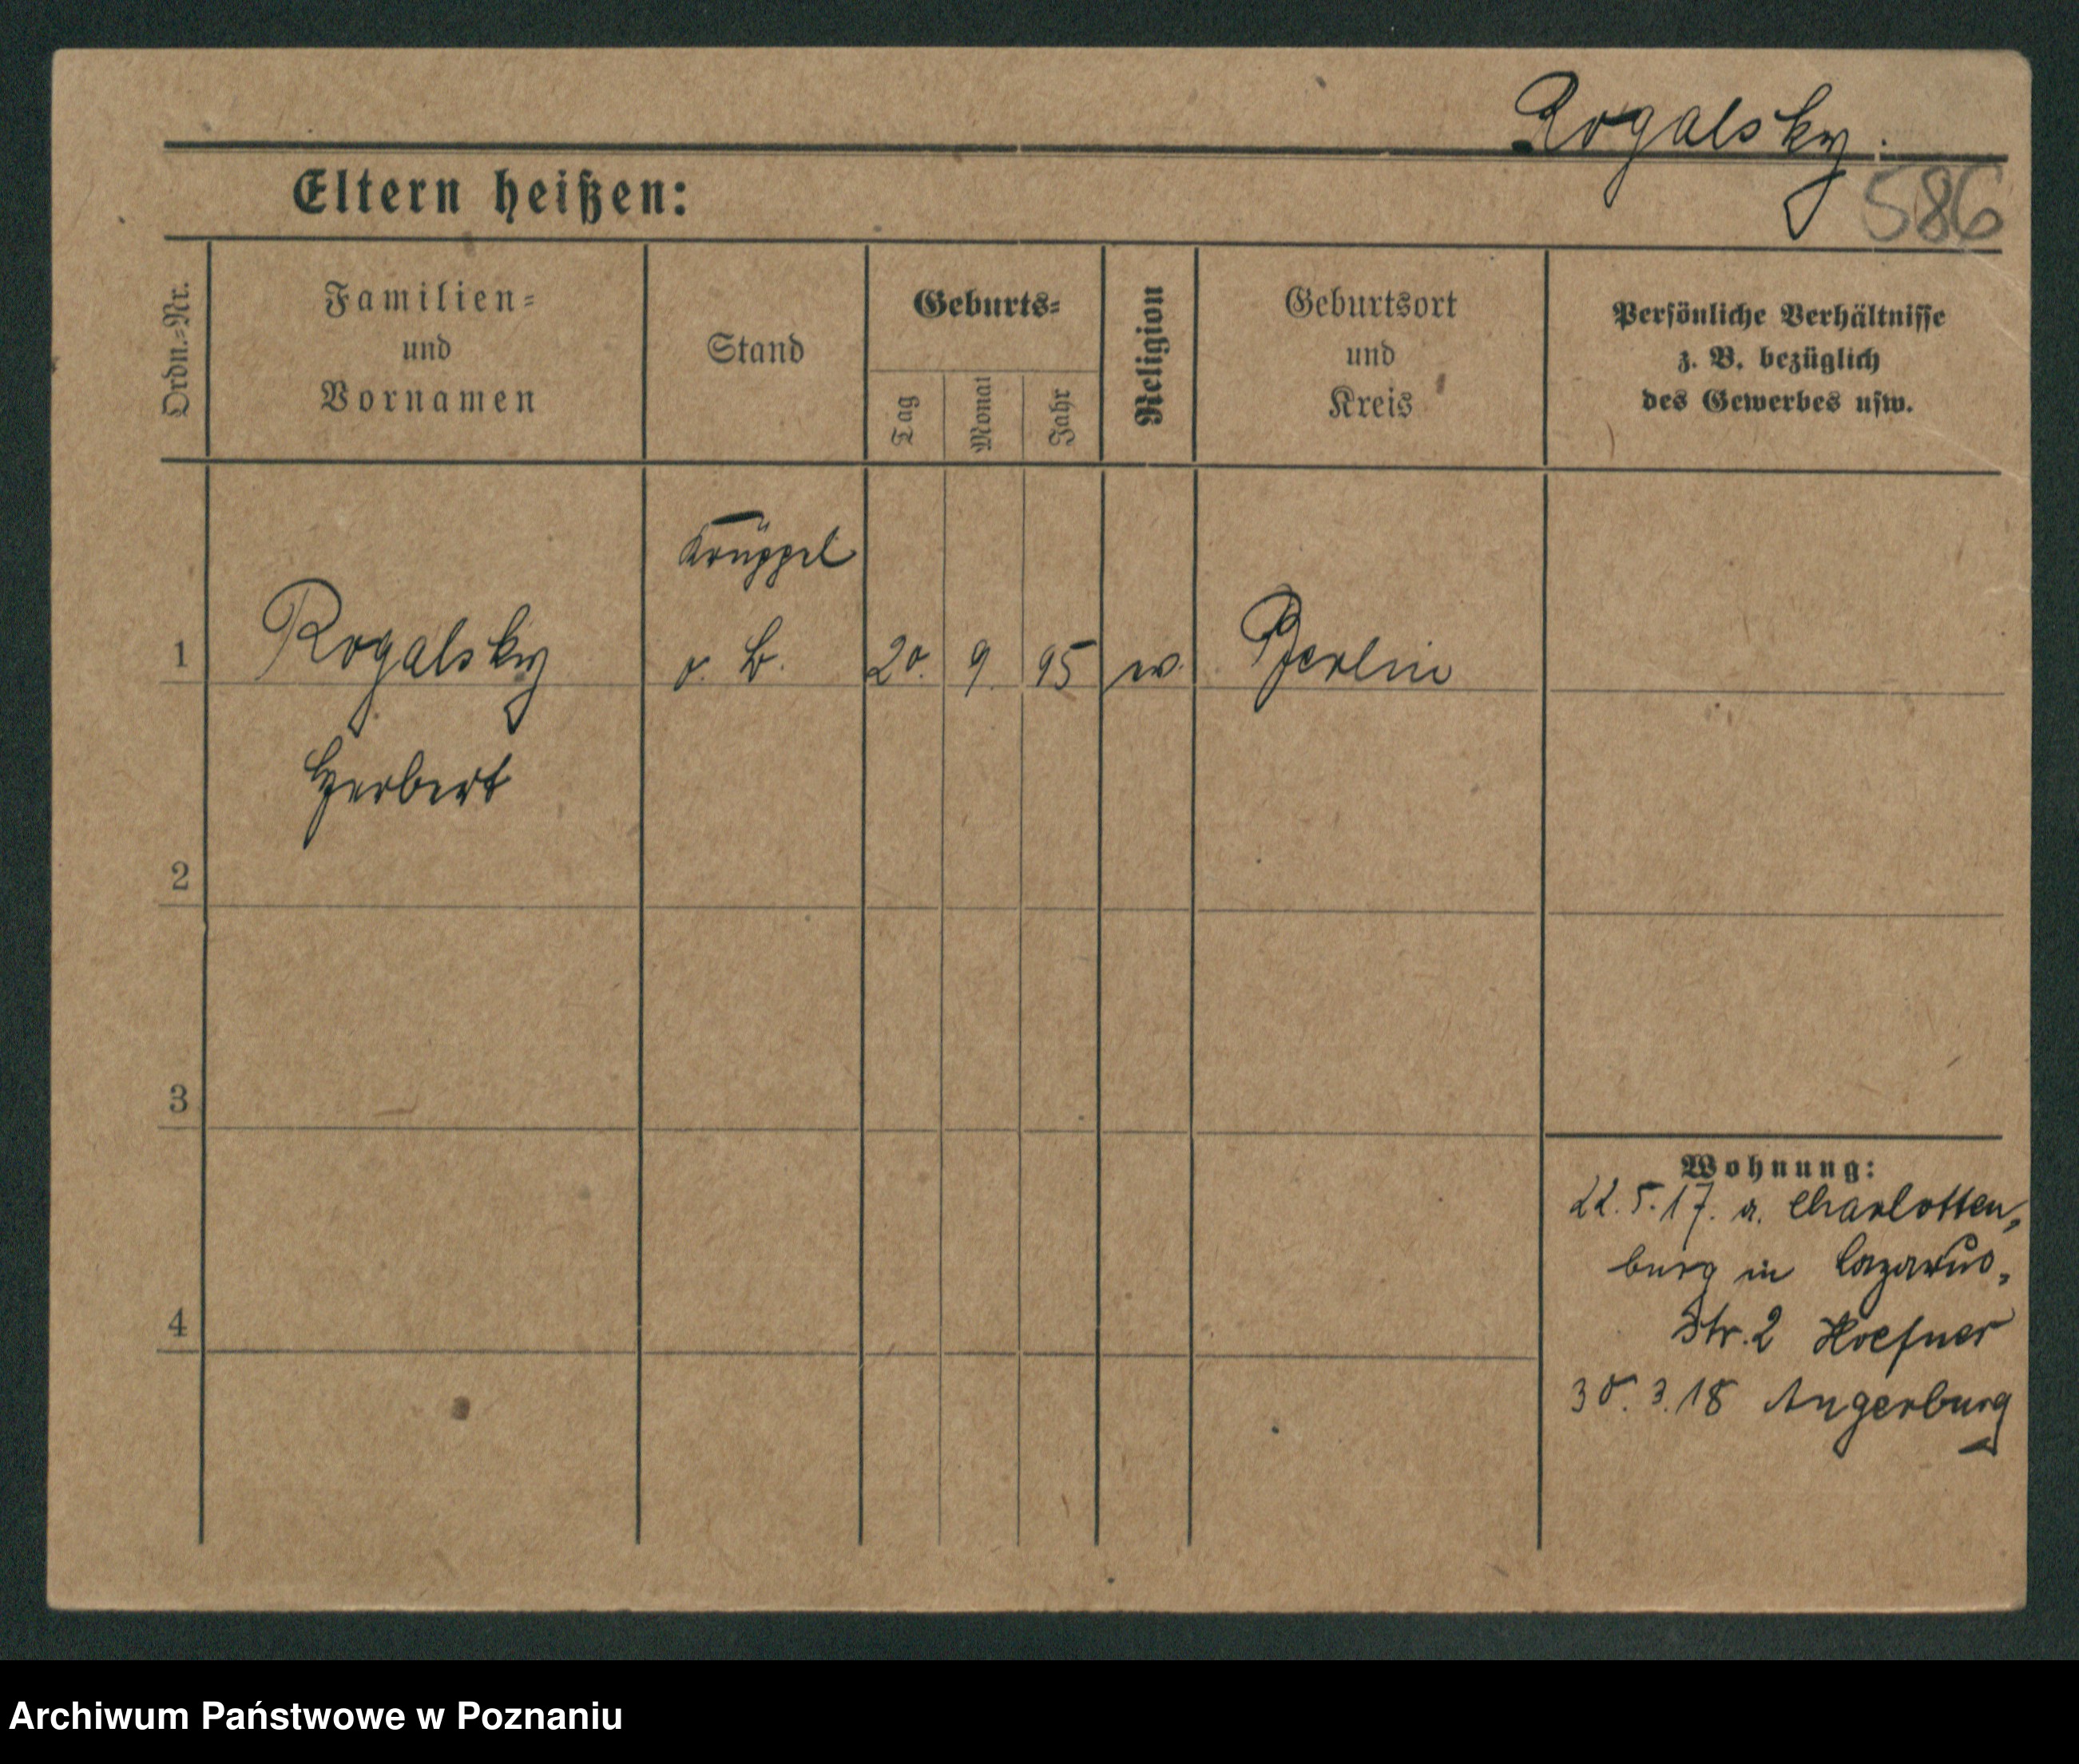 Rogalsky.
586
Eltern heißen:
Ordn.=Nr.
Familien=
und
Vornamen
Stand
Geburts=
Tag
Monat
Jahr
Religion
Geburtsort
und
Kreis
Persönliche Verhältnisse
z. B. bezüglich
des Gewerbes usw.
Krüppel
1 Rogalsky o. B. 20. 9. 95 ev. Berlin
Herbert
2
3
4
Wohnung:
22.5.17. a. Charlotten=
burg in Lazarus=
Str. 2 Hoefner
30. 3. 18 Angerburg
Archiwum Państwowe w Poznaniu